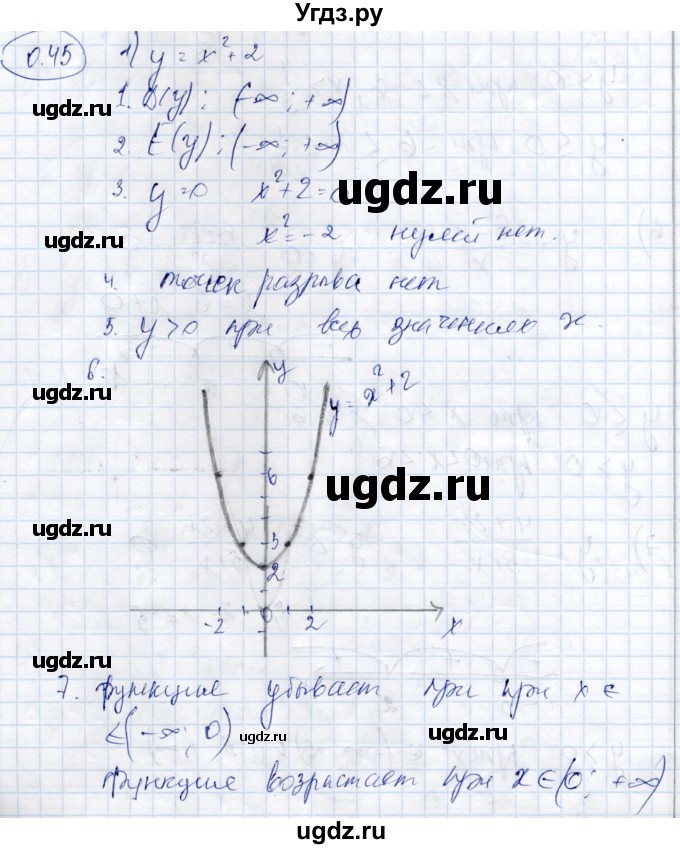 Угдз.ру
0.45 1) y = x² + 2
1. D(y); (-∞; +∞)
ugdz.ru ugdz.ru
2. E(y); (-∞; +∞)
ugdz.ru
3. y=0 x²+2=0
ugdz.ru
x²=-2 нулей нет.
4. точек разрыва нет
ugdz.ru ugdz.ru
5. y>0 при всех значениях x.
6.
y
y = x²+2
ugdz.ru
6
ugdz.ru
ugdz.ru
3
2
ugdz.ru
-2 0 2 x
ugdz.ru ugdz.ru
7. функция убывает при при x ∈
∈(-∞; 0)
ugdz.ru ugdz.ru
функция возрастает при x∈(0; +∞)
ugdz.ru